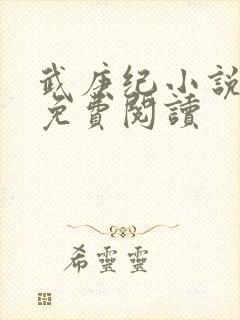 武庚纪小说
免費閱讀
希靈靈